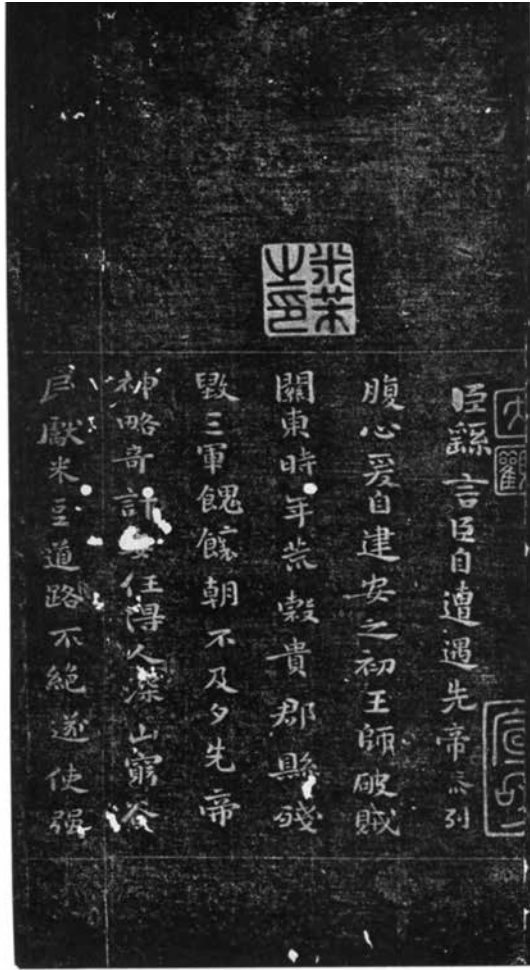 大觀
臣繇言臣自遭遇先帝忝列
腹心爰自建安之初王師破賊
米芾之印
關東時年荒穀貴郡縣殘
毀三軍餽饟朝不及夕先帝
神略奇計委任得人深山窮谷
民獻米豆道路不絕遂使强